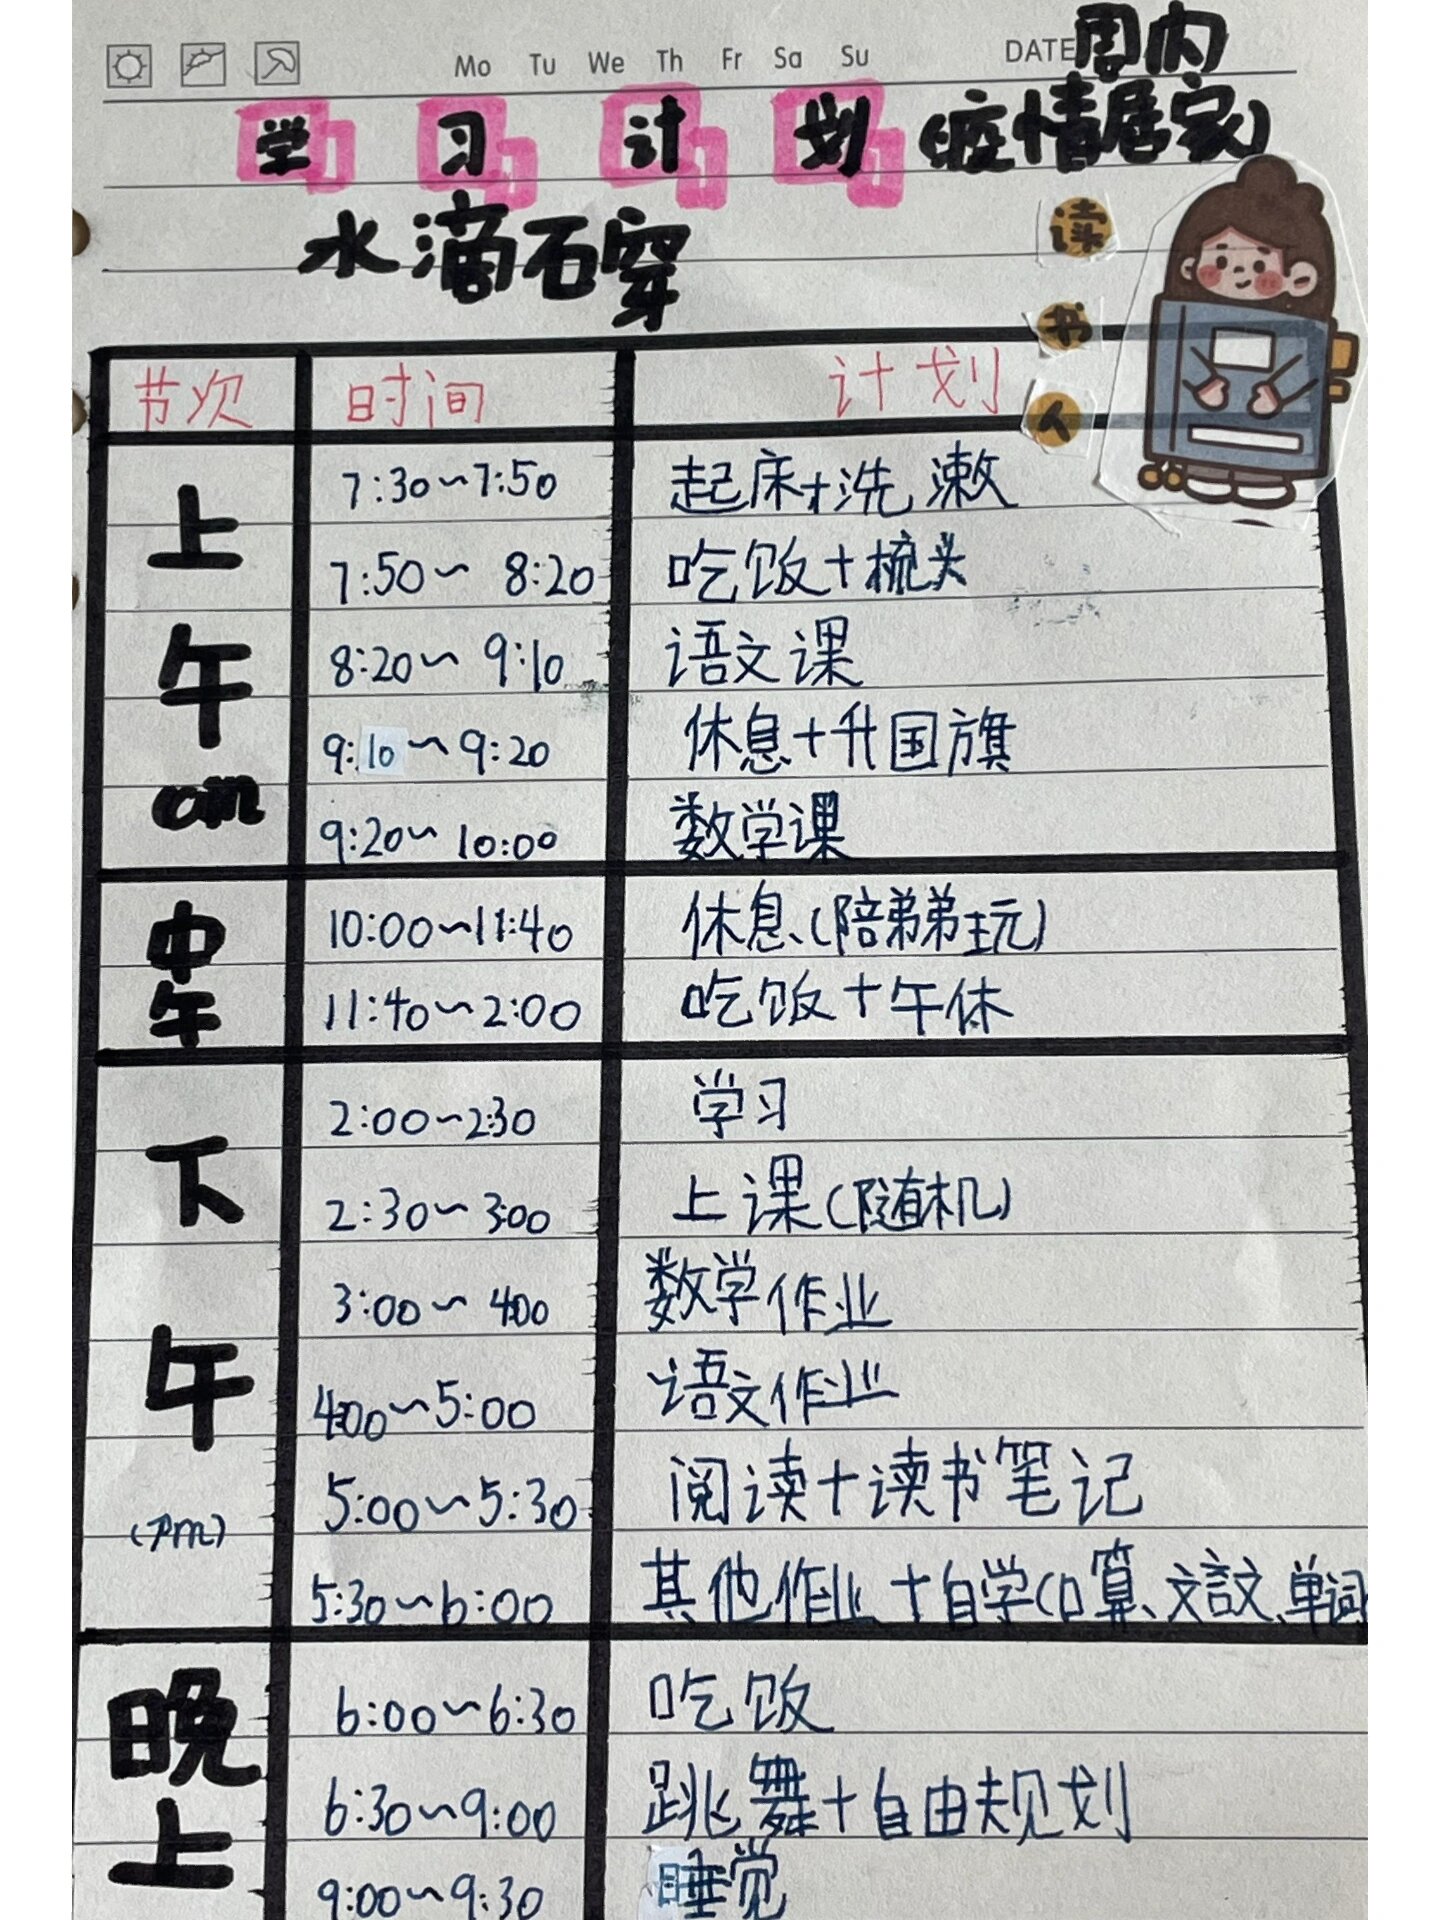 Mo Tu We Th Fr Sa Su DATE 周内
学习计划(疫情居家)
水滴石穿
读书人
节次 时间 计划
上午am
7:30~7:50 起床+洗漱
7:50~8:20 吃饭+梳头
8:20~9:10 语文课
9:10~9:20 休息+升国旗
9:20~10:00 数学课
中午
10:00~11:40 休息(陪弟弟玩)
11:40~2:00 吃饭+午休
下午(pm)
2:00~2:30 学习
2:30~3:00 上课(随机)
3:00~4:00 数学作业
4:00~5:00 语文作业
5:00~5:30 阅读+读书笔记
5:30~6:00 其他作业+自学(口算、文言文、单词
晚上
6:00~6:30 吃饭
6:30~9:00 跳舞+自由规划
9:00~9:30 睡觉